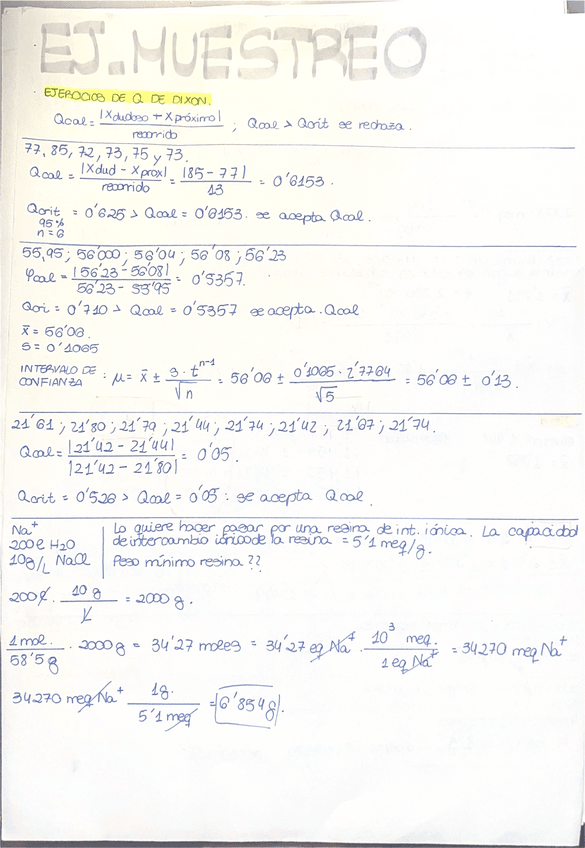 EJ. MUESTREO
EJERCICIOS DE Q DE DIXON.
Qcal = |Xdudoso + Xpróximo| / recorrido ; Qcal > Qcrit se rechaza.
77, 85, 72, 73, 75 y 73.
Qcal = |Xdud - Xprox| / recorrido = |85 - 77| / 13 = 0'6153.
Qcrit 95% n = 6 = 0'625 > Qcal = 0'6153. se acepta Qcal.
55,95 ; 56'000 ; 56'04 ; 56'08 ; 56'23
Qcal = |56'23 - 56'08| / 56'23 - 55'95 = 0'5357.
Qcri = 0'710 > Qcal = 0'5357 se acepta. Qcal
x̄ = 56'06
s = 0'1065
INTERVALO DE CONFIANZA : μ = x̄ ± s · t^(n-1) / √n = 56'06 ± 0'1065 · 2'7764 / √5 = 56'06 ± 0'13.
21'61 ; 21'80 ; 21'79 ; 21'44 ; 21'74 ; 21'42 ; 21'67 ; 21'74.
Qcal = |21'42 - 21'44| / |21'42 - 21'80| = 0'05.
Qcrit = 0'526 > Qcal = 0'05 : se acepta Qcal.
Na⁺
200 ℓ H₂O
10g/L NaCl
Lo quiere hacer pasar por una resina de int. iónica. La capacidad
de intercambio iónico de la resina = 5'1 meq/g.
Peso mínimo resina ??
200 ℓ · 10 g / ℓ = 2000 g.
1 mol. / 58'5 g · 2000 g = 34'27 moles = 34'27 eq Na⁺ · 10³ meq. / 1 eq Na⁺ = 34270 meq Na⁺
34270 meq Na⁺ 1g. / 5'1 meq = 6'854 g.